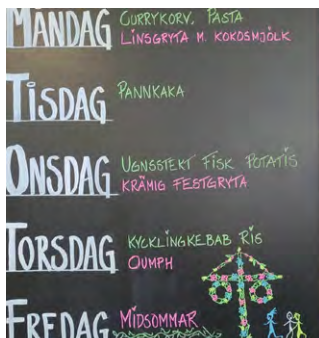 MÅNDAG CURRYKORV, PASTA
LINSGRYTA M. KOKOSMJÖLK
TISDAG PANNKAKA
ONSDAG UGNSSTEKT FISK POTATIS
KRÄMIG FESTGRYTA
TORSDAG KYCKLINGKEBAB RIS
OUMPH
FREDAG MIDSOMMAR